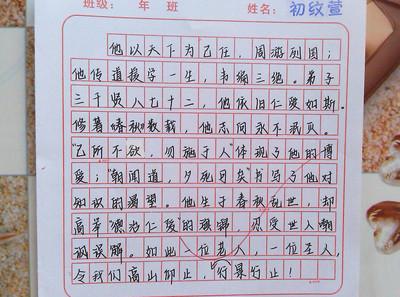 班级: 年 班 姓名: 初纹萱
他以天下为己任，周游列国；
他传道授学一生，韦编三绝。弟子
三千贤人七十二，他依旧仁爱如斯。
修著《春秋》数载，他志向永不泯灭。
“己所不欲，勿施于人”体现了他的博
爱；“朝闻道，夕死可矣”书写了他对
知识的渴望。他生于春秋乱世，却
高举“德治仁爱”的旗帜，忍受世人嘲
讽误解。如此一位老人，一位圣人，
令我们高山仰止，行景行止！